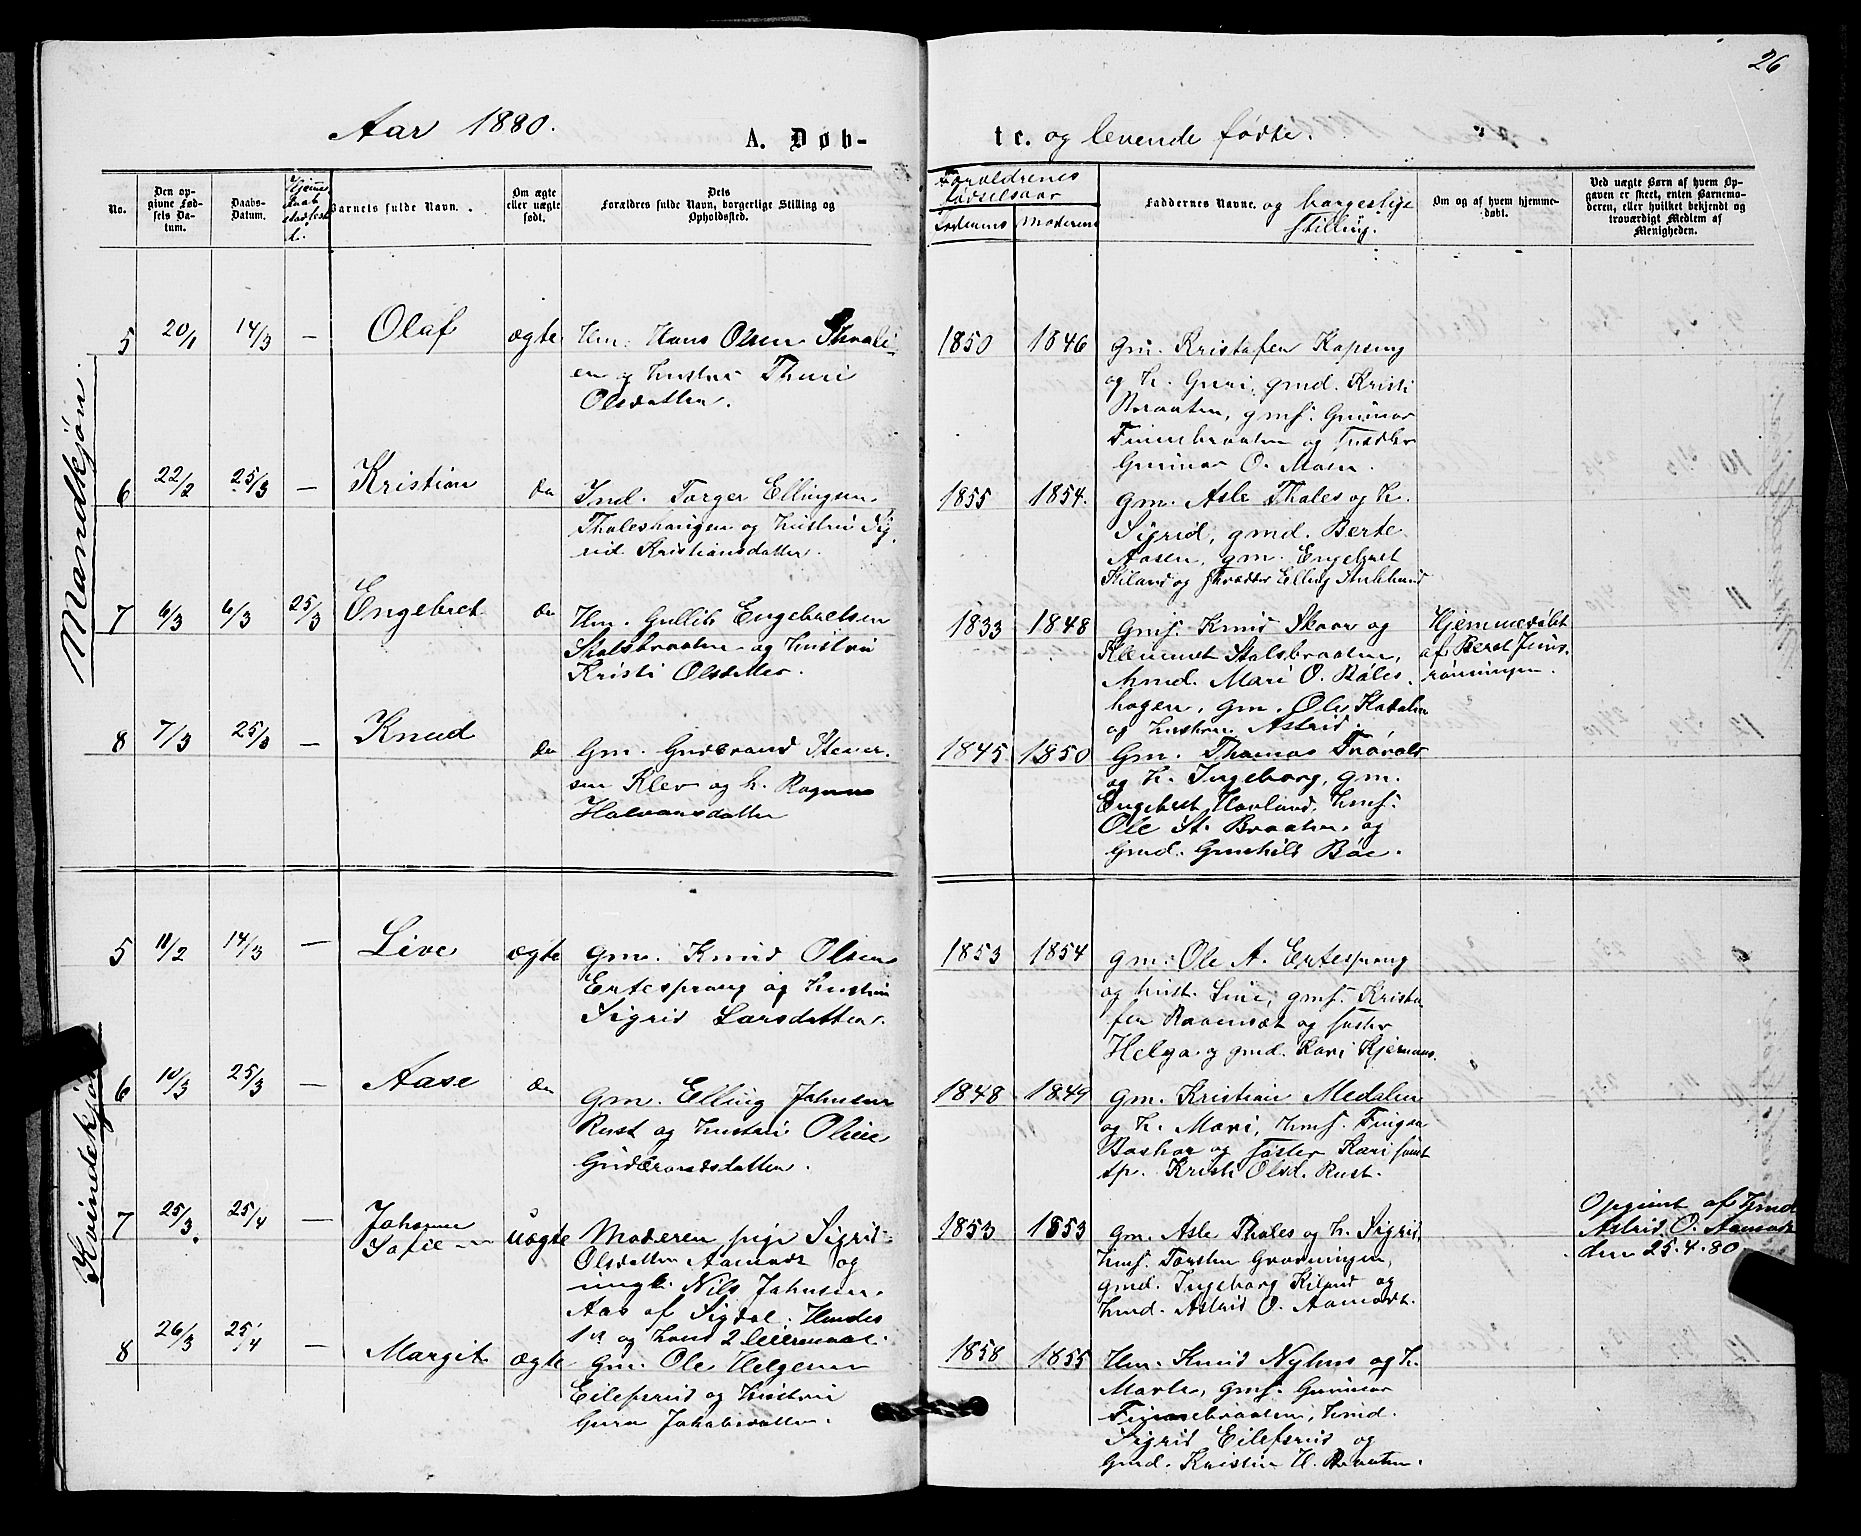 26
Aar 1880.
A. Døb-
te. og levende fødte.
No.
Den op-
givne Fød-
sels Da-
tum.
Daabs-
Datum.
Barnets fulde Navn.
Om ægte
eller uægte
født.
Dets
Forældres fulde Navn, borgerlige Stilling og
Opholdssted.
Foreldrenes
fødselsaar
Faderens Moderens
Faddernes Navne. og borgerlige
stilling.
Om og af hvem hjemme-
døbt.
Ved uægte Børn af hvem Op-
gaven er skeet, enten Barnemo-
deren, eller hvilket bekjendt og
troværdigt Medlem af
Menigheden.
Mandkjøn.
5 20/1 14/3 — Olaf ægte
Hm. Hans Olsen
en og hustru Thuri
Olsdatter.
1850 1846
Gm. Kristofer Kopseng
og h. Guri, gmd. Kristi
Braaten, gmf. Gunnar
Finnebraaten og
Gunnar O. Moen.
6 22/2 25/3 — Kristian do
Ind. Torger Ellingsen
Thaleshaugen og hustru Sig-
rid Kristiansdatter.
1855 1854.
Gm. Asle Thales og h.
Sigrid, gmd. Berte
Aasen, gm. Engebret
Kiland og Elling
7 6/3 6/3 25/3 Engebret do
Hm. Gullik Engebretsen
Stalsbraaten og hustru
Kristi Olsdatter.
1833 1848
Gmf. Knud Skaar og
Klemmet Stalsbraaten,
hmd. Mari O.
hagen, gm. Ole
og hustru Astrid.
Hjemmedøbt
af Beret
rønningen.
8 7/3 25/3 — Knud do
Gm. Gudbrand Stener-
sen Klev og h. Ragne
Halvorsdatter
1845 1850
Gm. Thomas
og h. Ingeborg, gm.
Engebret Hovland, hmf.
Ole St. Braaten, og
Gmd. Gunhild Bøe.
Kvindekjøn
5 11/2 14/3 — Live ægte
Gm. Knud Olsen
Ertesprang og hustru
Sigrid Larsdatter.
1853 1854
Gm. Ole A. Ertesprang
og hust. Live, gmf. Kristo-
fer Ravnsæt og søster
Helga og gmd. Kari
6 10/3 25/3 — Aase do
Gm. Elling Johnsen
Rust og hustru Oline
Gudbrandsdatter.
1848 1849
Gm. Kristian Medalen
og h. Mari, hmf. Fingar
og søster Kari samt
sp. Kristi Olsd. Rust.
7 25/3. 25/4 — Johanne
Sofie uægte
Moderen pige Sigrid
Olsdatter Aamodt og
ungk. Nils Johnsen
Aas af Sigdal. Hendes
1st og hans 2 leiermaal.
1853 1853
Gm. Asle Thales og h. Sigrid,
hmf. Torsten Grønningen,
gmd. Ingeborg Kiland og
hmd. Astrid O. Aamodt.
Opgivet af hmd
Astrid O. Aamodt
den 25.4.80
8 26/3 25/4 — Margit ægte
Gm. Ole Helgesen
Eilefsrud og hustru
Guro Jakobsdatter.
1858 1855
Hm. Knud Nyhus og h.
Marte, gmf. Gunnar
Finnebraaten, hmd.
Sigrid Eilefsrud og
Gmd. Kristin H. Braaten.